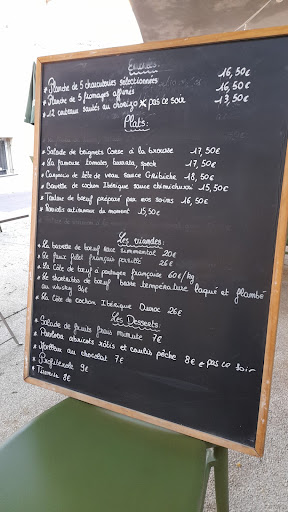 Entrées:
* Planche de 5 charcuteries sélectionnées 16,50€
* Planche de 5 fromages affinés 16,50€
* 12 couteaux sautés au chorizo * pas ce soir 13,50€
Plats:
* Salade de beignets Corse à la brousse 17,50€
* La fameuse tomates, burrata, speck 17,50€
* Carpaccio de tête de veau sauce Gribiche 18,50€
* Bavette de cochon Ibérique sauce chimichurri 15,50€
* Tartare de boeuf préparé par nos soins 16,50€
* Raviolis artisanaux du moment 15,50€
Les viandes:
* La bavette de boeuf race simmental 20€
* Le faux filet français persillé 26€
* La Côte de boeuf à partager française 60€/kg
* Le shortribs de boeuf basse température laqué et flambé
au whisky 34€
* La Côte de cochon Ibérique Duroc 26€
Les Desserts:
* Salade de fruits frais minute 7€
* Pavlova abricots rôtis et coulis pêche 8€ * pas ce soir
* Moelleux au chocolat 7€
* Profiterole 9€
* Tiramisu 8€